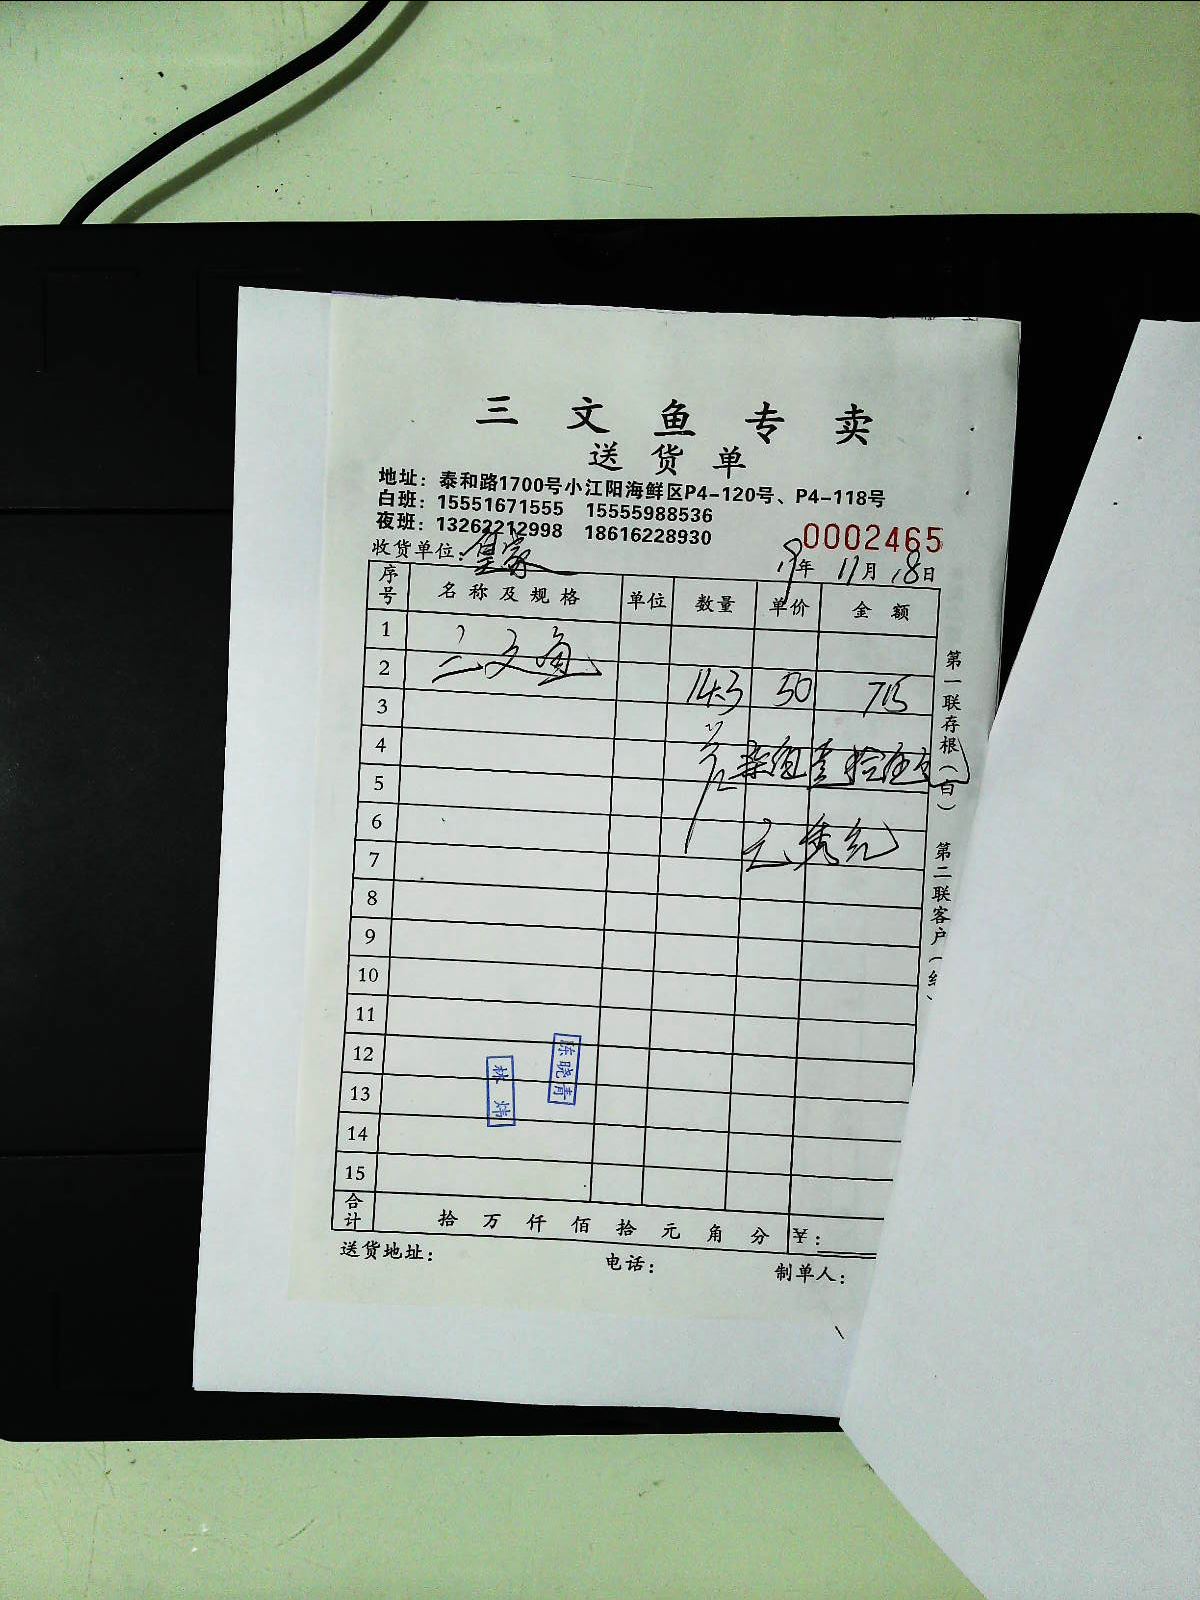 三文鱼专卖
送货单
地址：泰和路1700号小江阳海鲜区P4-120号、P4-118号
白班：15551671555 15555988536
夜班：13262212998 18616228930
0002465
收货单位：皇家 19年 11月 18日
序号 名称及规格 单位 数量 单价 金额
1
2 三文鱼 14.3 50 715
3
4 柒佰壹拾伍
5
6
7
8
9
10
11
12
13
14
15
陈晓青
林炜
合计 拾 万 仟 佰 拾 元 角 分 ¥：
送货地址： 电话： 制单人：
第一联存根（白） 第二联客户（